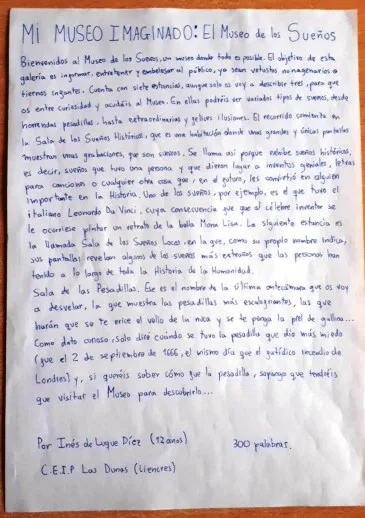 MI MUSEO IMAGINADO: El Museo de los Sueños
Bienvenidos al Museo de los Sueños, un museo donde todo es posible. El objetivo de esta
galería es informar, entretener y embelesar al público, ya sean vetustos nonagenarios o
tiernos infantes. Cuenta con siete estancias, aunque solo os voy a describir tres, para que
os entre curiosidad y acudáis al Museo. En ellas podréis ver variados tipos de sueños, desde
horrendas pesadillas, hasta extraordinarias y felices ilusiones. El recorrido comienza en
la Sala de los Sueños Históricos, que es una habitación donde unas grandes y únicas pantallas
muestran unas grabaciones, que son sueños. Se llama así porque exhibe sueños históricos,
es decir, sueños que tuvo una persona y que dieron lugar a inventos geniales, letras
para canciones o cualquier otra cosa que, en el futuro, les convirtió en alguien
importante en la Historia. Uno de los sueños, por ejemplo, es el que tuvo el
italiano Leonardo Da Vinci, cuya consecuencia fue que al célebre inventor se
le ocurriese pintar un retrato de la bella Mona Lisa. La siguiente estancia es
la llamada Sala de los Sueños Locos, en la que, como su propio nombre indica,
sus pantallas revelan algunos de los sueños más extraños que las personas han
tenido a lo largo de toda la Historia de la Humanidad.
Sala de las Pesadillas. Ese es el nombre de la última antecámara que os voy
a desvelar, la que muestra las pesadillas más escalofriantes, las que
harán que se te erice el vello de la nuca y se te ponga la piel de gallina...
Como dato curioso, solo diré cuándo se tuvo la pesadilla que dio más miedo
(fue el 2 de septiembre de 1666, el mismo día que el fatídico incendio de
Londres) y, si queréis saber cómo fue la pesadilla, supongo que tendréis
que visitar el Museo para descubrirlo...
Por Inés de Luque Díez (12 años) 300 palabras.
C.E.I.P Las Dunas (Liencres)